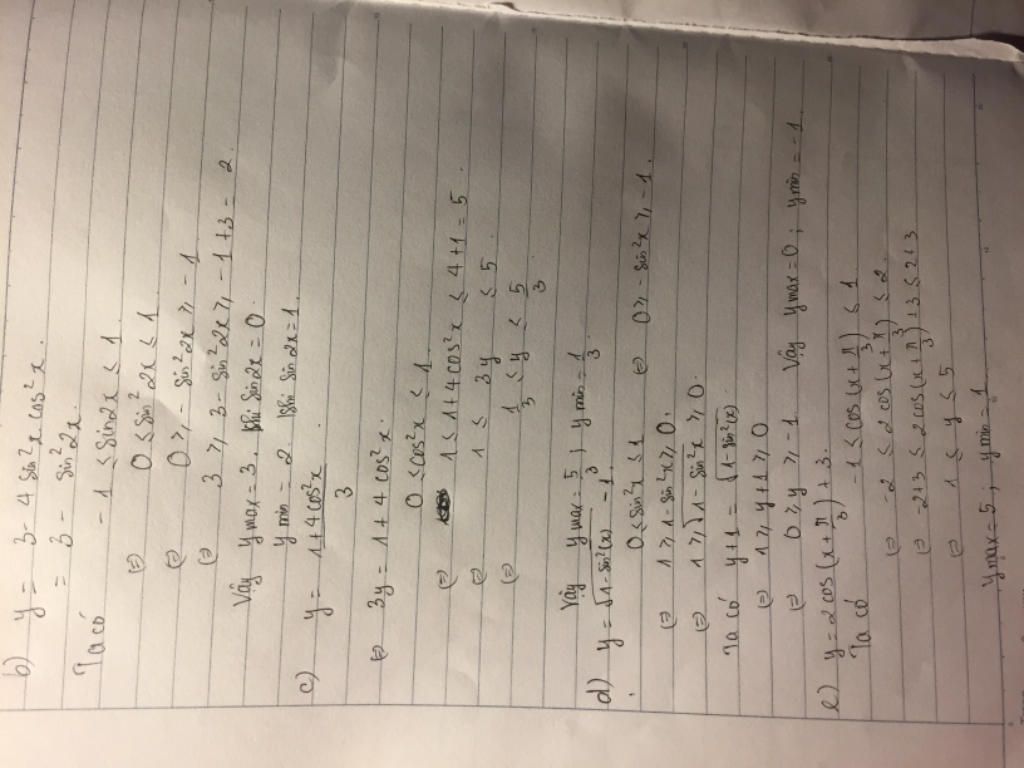 b) y = 3 - 4 sin²x cos²x.
= 3 - sin²2x.
Ta có -1 ≤ sin2x ≤ 1
⇔ 0 ≤ sin²2x ≤ 1
⇔ 0 ≥ - sin²2x ≥ -1
⇔ 3 ≥ 3 - sin²2x ≥ -1 + 3 = 2.
Vậy ymax = 3. khi sin2x = 0.
ymin = 2 khi sin2x = 1.
c) y = (1 + 4cos²x)/3.
⇔ 3y = 1 + 4cos²x.
0 ≤ cos²x ≤ 1.
⇔ 1 ≤ 1 + 4cos²x ≤ 4 + 1 = 5.
⇔ 1 ≤ 3y ≤ 5
⇔ 1/3 ≤ y ≤ 5/3
Vậy ymax = 5/3; ymin = 1/3
d) y = √(1 - sin²(x)) - 1.
0 ≤ sin²x ≤ 1 ⇔ 0 ≥ - sin²x ≥ -1.
⇔ 1 ≥ 1 - sin²x ≥ 0.
⇔ 1 ≥ √(1 - sin²x) ≥ 0.
Ta có y + 1 = √(1 - sin²(x))
⇔ 1 ≥ y + 1 ≥ 0
⇔ 0 ≥ y ≥ -1. Vậy ymax = 0; ymin = -1.
e) y = 2cos(x + π/3) + 3.
Ta có -1 ≤ cos(x + π/3) ≤ 1
⇔ -2 ≤ 2cos(x + π/3) ≤ 2.
⇔ -2+3 ≤ 2cos(x + π/3) + 3 ≤ 2+3
⇔ 1 ≤ y ≤ 5
ymax = 5, ymin = 1